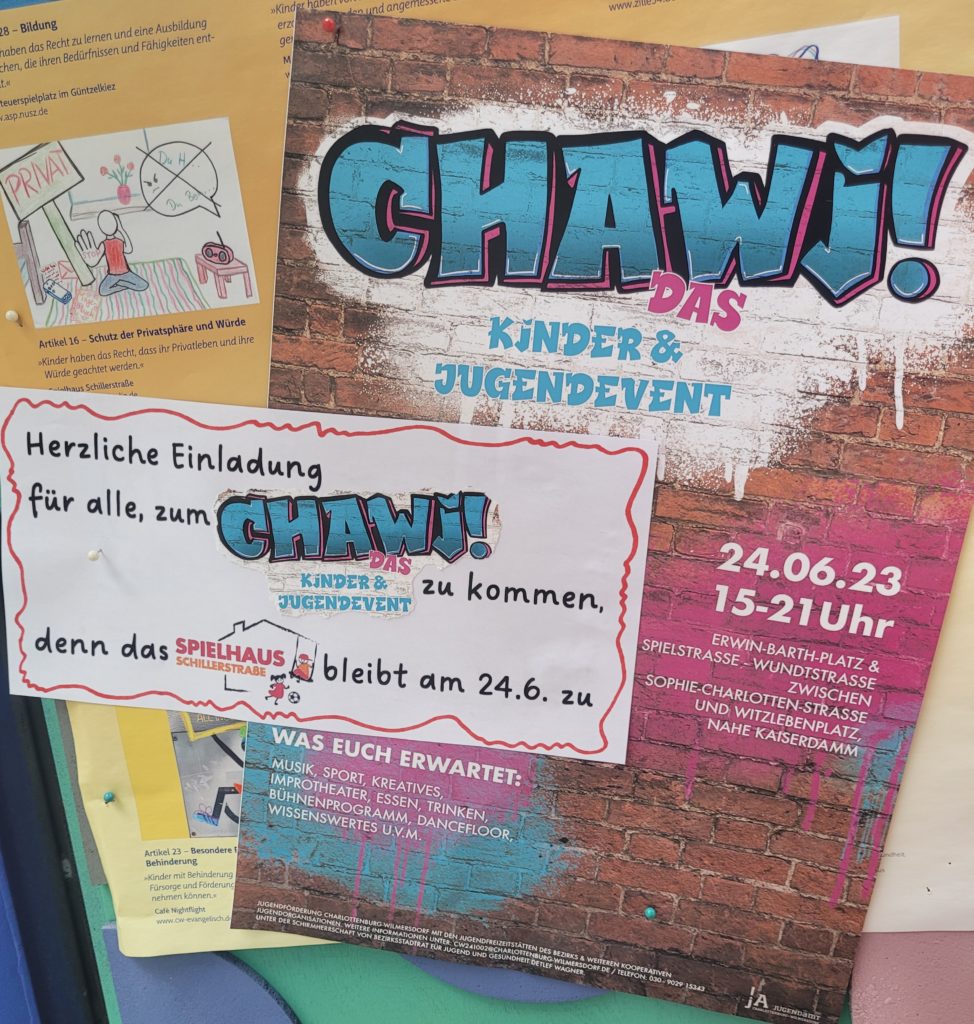 28 – Bildung
haben das Recht zu lernen und eine Ausbildung
chen, die ihren Bedürfnissen und Fähigkeiten ent-
t.«
teuerspielplatz im Güntzelkiez
w.asp.nusz.de
»Kinder haben
und angemessenen
PRIVAT
Du
Du
STOP
Artikel 16 – Schutz der Privatsphäre und Würde
»Kinder haben das Recht, dass ihr Privatleben und ihre
Würde geachtet werden.«
Spielhaus Schillerstraße
CHAWJ!
DAS
KINDER &
JUGENDEVENT
Herzliche Einladung
für alle, zum CHAWJ!
DAS
KINDER &
JUGENDEVENT zu kommen,
denn das SPIELHAUS
SCHILLERSTRAßE bleibt am 24.6. zu
24.06.23
15-21Uhr
ERWIN-BARTH-PLATZ &
SPIELSTRASSE - WUNDTSTRASSE
ZWISCHEN
SOPHIE-CHARLOTTEN-STRASSE
UND WITZLEBENPLATZ,
NAHE KAISERDAMM
WAS EUCH ERWARTET:
MUSIK, SPORT, KREATIVES,
IMPROTHEATER, ESSEN, TRINKEN,
BÜHNENPROGRAMM, DANCEFLOOR,
WISSENSWERTES U.V.M.
Artikel 23 – Besondere
Behinderung
»Kinder mit Behinderung
Fürsorge und Förderung
nehmen können.«
Café Nightflight
www.cw-evangelisch.de
JUGENDFÖRDERUNG CHARLOTTENBURG-WILMERSDORF MIT DEN JUGENDFREIZEITSTÄTTEN DES BEZIRKS & WEITEREN KOOPERATIVEN
JUGENDORGANISATIONEN. WEITERE INFORMATIONEN UNTER: CW241002@CHARLOTTENBURG-WILMERSDORF.DE / TELEFON: 030 - 9029 15343
UNTER DER SCHIRMHERRSCHAFT VON BEZIRKSSTADTRAT FÜR JUGEND UND GESUNDHEIT DETLEF WAGNER.
jA JUGENDAMT
CHARLOTTENBURG-WILMERSDORF